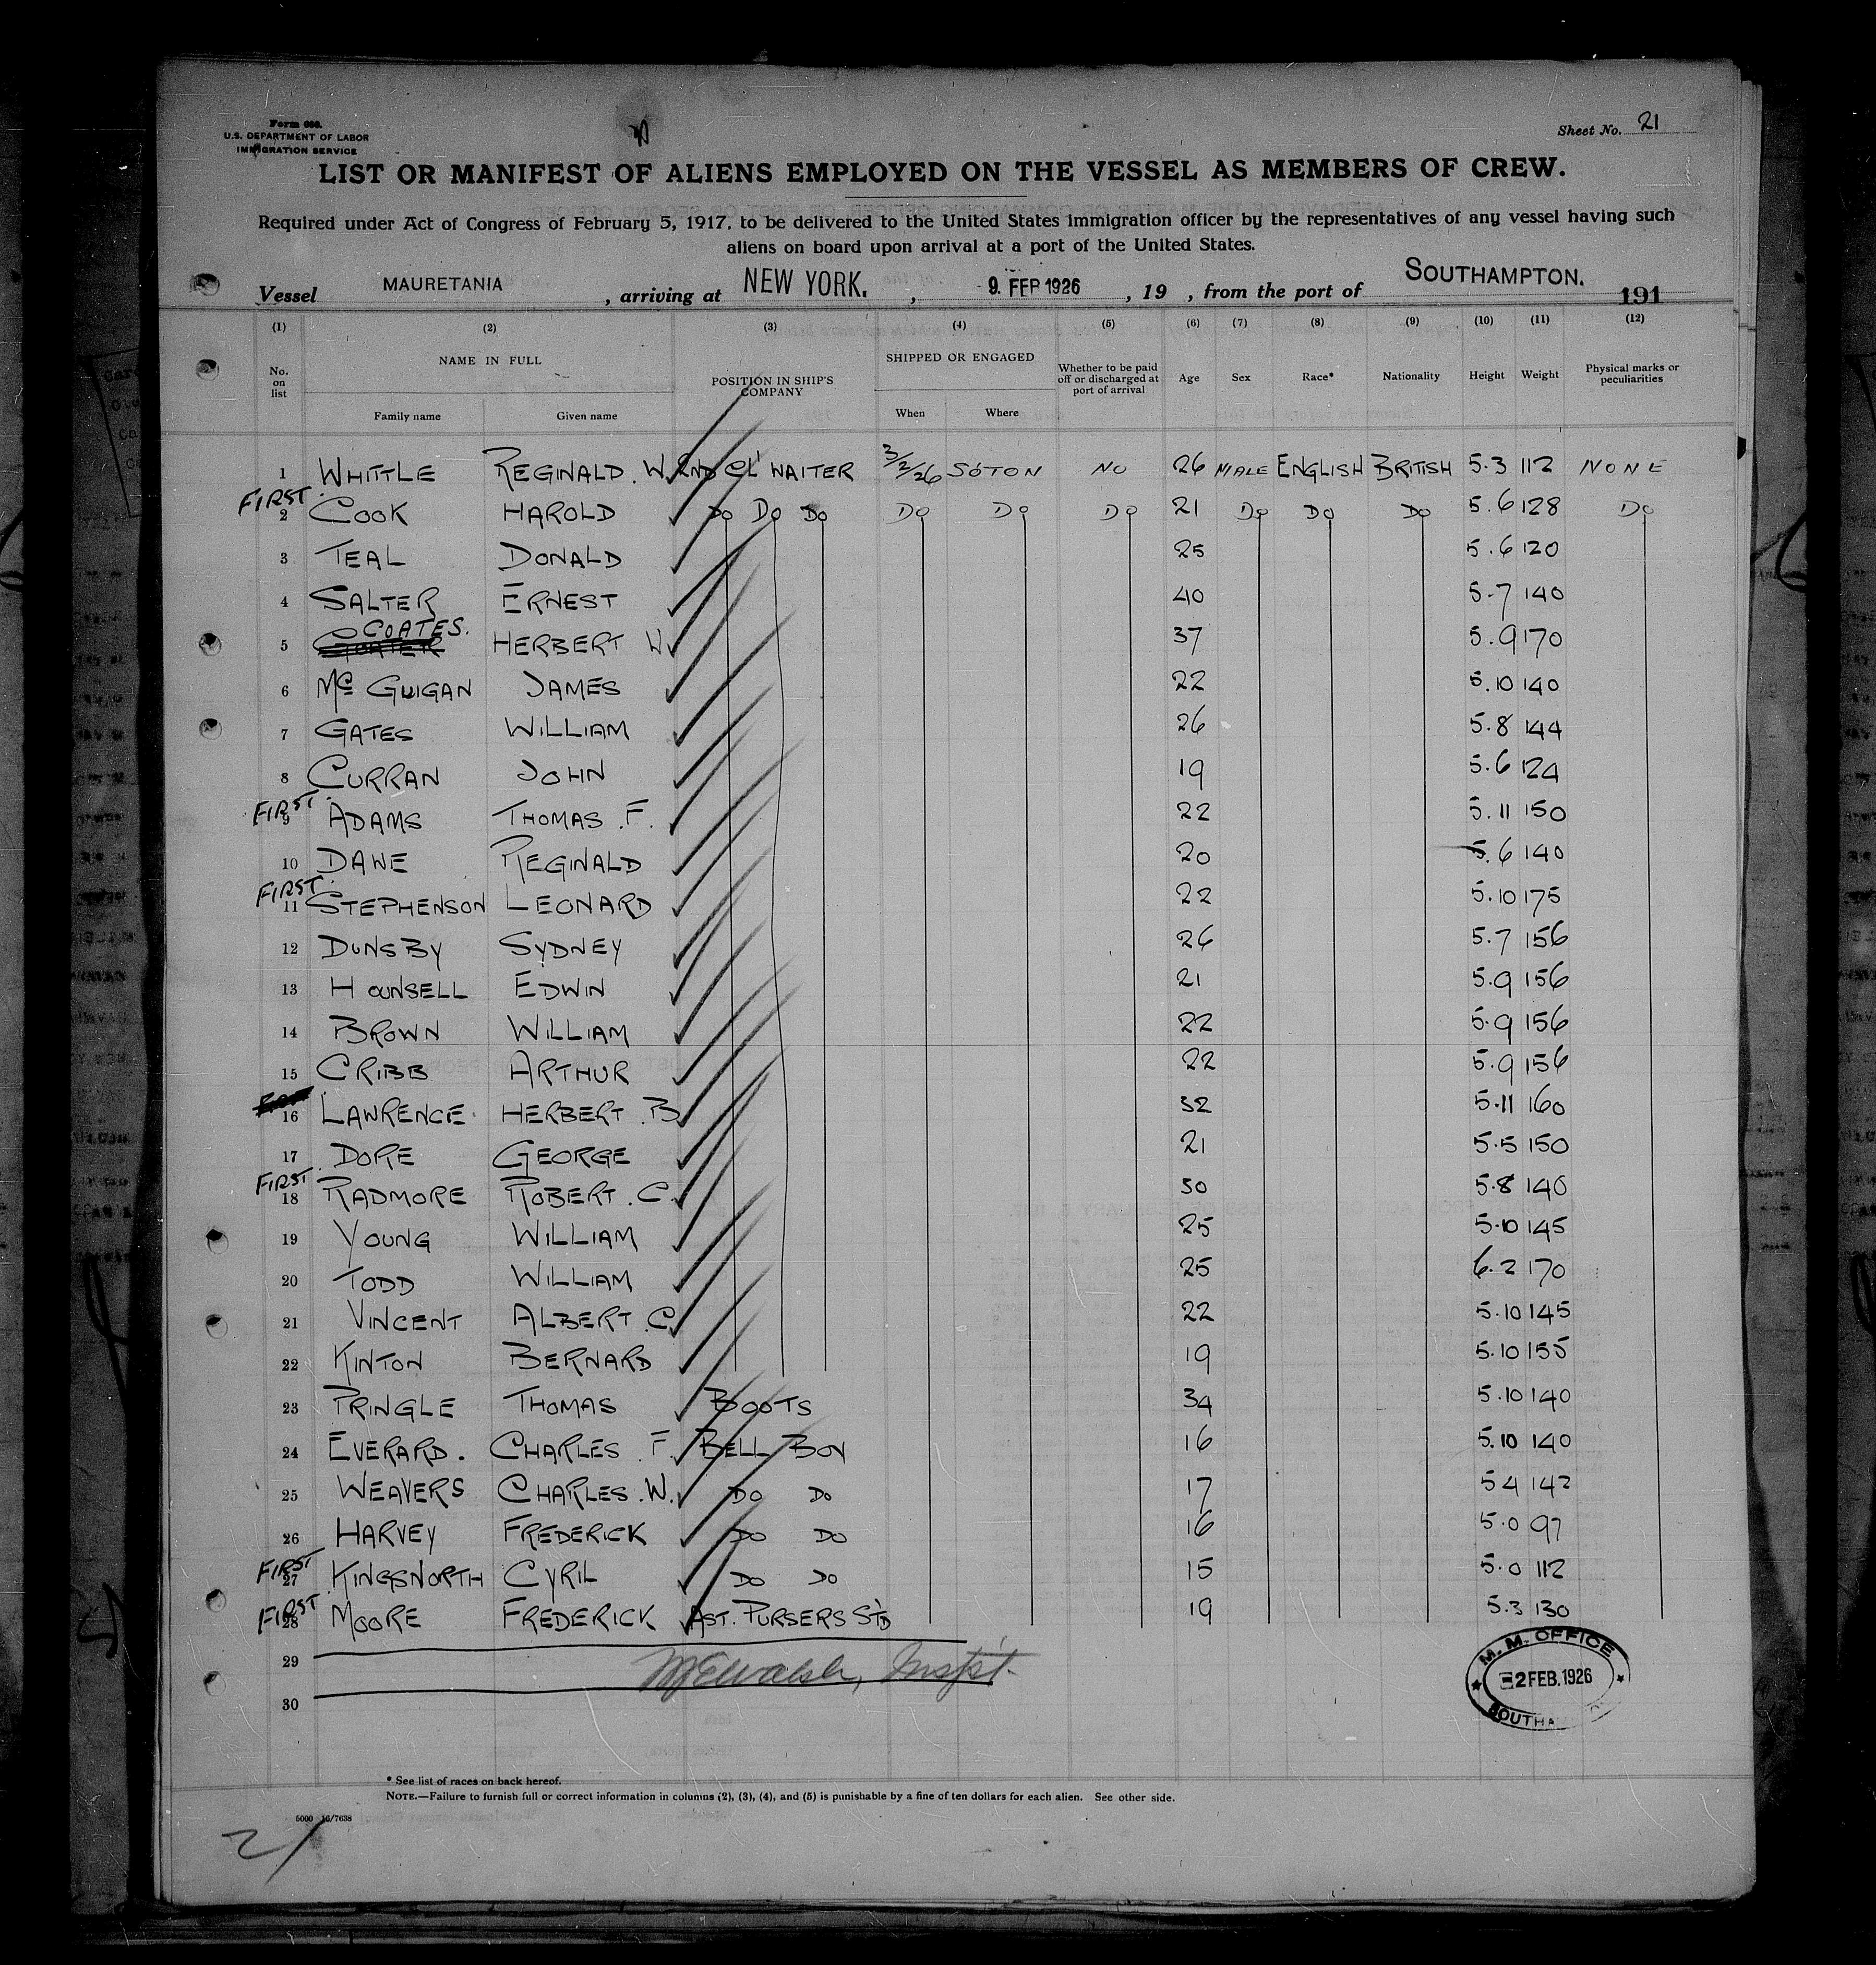 Form 680.
U.S. DEPARTMENT OF LABOR
IMMIGRATION SERVICE
Sheet No. 21
LIST OR MANIFEST OF ALIENS EMPLOYED ON THE VESSEL AS MEMBERS OF CREW.
Required under Act of Congress of February 5, 1917, to be delivered to the United States immigration officer by the representatives of any vessel having such
aliens on board upon arrival at a port of the United States.
Vessel MAURETANIA , arriving at NEW YORK. , 9. FEB 1926 , 19 , from the port of SOUTHAMPTON. 191
(1) (2) (3) (4) (5) (6) (7) (8) (9) (10) (11) (12)
No. on list NAME IN FULL Family name Given name POSITION IN SHIP'S COMPANY SHIPPED OR ENGAGED When Where Whether to be paid off or discharged at port of arrival Age Sex Race* Nationality Height Weight Physical marks or peculiarities
1 WHITTLE REGINALD . W. 2ND CL' WAITER 3/2/26 SÓTON NO 26 MALE ENGLISH BRITISH 5.3 112 NONE
FIRST. 2 COOK HAROLD DO DO DO DO DO DO 21 DO DO DO 5.6 128 DO
3 TEAL DONALD 25 5.6 120
4 SALTER ERNEST 40 5-7 140
5 COATES. HERBERT W. 37 5.9 170
6 Mc GUIGAN JAMES 22 5.10 140
7 GATES WILLIAM 26 5.8 144
8 CURRAN JOHN 19 5.6 124
FIRST. 9 ADAMS THOMAS .F. 22 5.11 150
10 DAWE REGINALD 20 5.6 140
FIRST. 11 STEPHENSON LEONARD 22 5.10 175
12 DUNSBY SYDNEY 26 5.7 156
13 HOUNSELL EDWIN 21 5.9 156
14 BROWN WILLIAM 22 5.9 156
15 CRIBB ARTHUR 22 5.9 156
16 LAWRENCE HERBERT .B. 32 5.11 160
17 DORE GEORGE 21 5.5 150
FIRST. 18 RADMORE ROBERT .C. 30 5.8 140
19 YOUNG WILLIAM 25 5.10 145
20 TODD WILLIAM 25 6.2 170
21 VINCENT ALBERT .C. 22 5.10 145
22 KINTON BERNARD 19 5.10 155
23 PRINGLE THOMAS BOOTS 34 5.10 140
24 EVERARD. CHARLES .F. BELL BOY 16 5.10 140
25 WEAVERS CHARLES .W. DO DO 17 5 4 142
26 HARVEY FREDERICK DO DO 16 5.0 97
FIRST 27 KINGSNORTH CYRIL DO DO 15 5.0 112
FIRST 28 MOORE FREDERICK AST. PURSERS ST'D 19 5.3 130
29
30
M.M. OFFICE
2 FEB. 1926
* See list of races on back hereof.
NOTE.—Failure to furnish full or correct information in columns (2), (3), (4), and (5) is punishable by a fine of ten dollars for each alien. See other side.
5000 16/7638
21